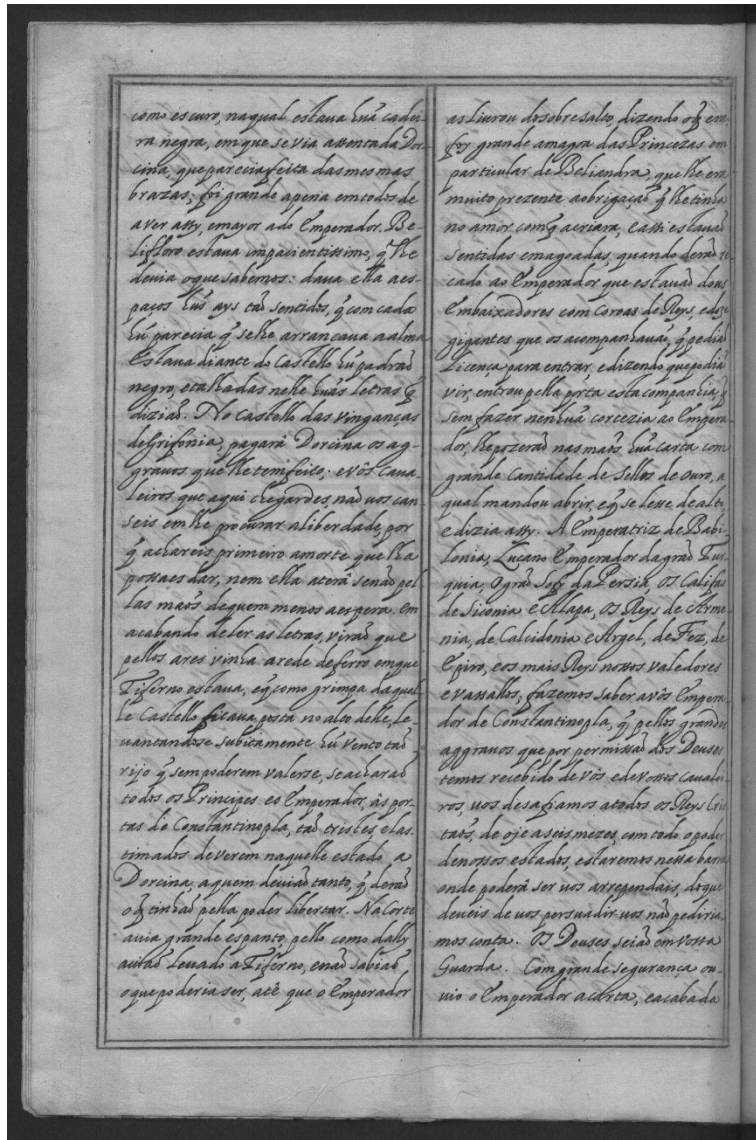 como escuro, na qual estaua hũa cadei-
ra negra, em que se via assentada Dor-
cina, que parecia feita das mesmas
brazas; foi grande a pena em todos de
a ver assy, e mayor a do Emperador. Be-
lifloro estava impacientissimo, q̃ lhe
devia o que sabemos: dava ella a es-
paços hũs ays taõ sentidos, q̃ com cada
hũ parecia q̃ se lhe arrancava a alma
Estava diante do Castello hũ padraõ
negro, e talhadas nelle hũas letras q̃
diziaõ. No Castello das vinganças
de Grifonia, pagarâ Dorcina os ag-
gravos que lhe tem feito; e vôs Caua-
leiros que aqui chegardes, naõ vos can-
seis em lhe procurar a liberdade, por
q̃ achareis primeiro a morte que lha
possaes dar, nem ella a terâ senaõ pel-
las maõs de quem menos a espera. Em
acabando de ler as letras, viraõ que
pellos ares vinha a rede de ferro em que
Tiferno estava, e q̃ como grimpa daquel-
le Castello ficava posta no alto delle, le-
vantandose subitamente hũ vento taõ
rijo q̃ sem poderem valerse, se acharaõ
todos os Principes e o Emperador, âs por-
tas de Constantinopla, taõ tristes, e las-
timados de verem naquelle estado a
Dorcina, a quem deviaõ tanto, q̃ deraõ
o q̃ tinhaõ pella poder libertar. Na Corte
avia grande espanto, pello como dally
aviaõ levado a Tiferno, e naõ sabiaõ
o que poderia ser, atê que o Emperador
as livrou do sobresalto, dizendo o q̃ era
foy grande a magoa das Princezas em
particular de Beliandra, que lhe era
muito prezente a obrigaçaõ q̃ lhe tinha
no amor com q̃ a criara, e assi estavaõ
sentidas e magoadas, quando deraõ re-
cado ao Emperador que estavaõ dous
Embaixadores com Coroas de Reys, e doze
gigantes que os acompanhavaõ, q̃ pediaõ
Licença para entrar, e dizendo que podiaõ
vir, entrou pella porta esta companhia, q̃
sem fazer nenhũa cortezia ao Empera-
dor, lhe pozeraõ nas maõs hũa carta com
grande Cantidade de Sellos de ouro, a
qual mandou abrir, e q̃ se lesse de alto,
e dizia assy. A Emperatriz de Babi-
lonia, Lucano Emperador da graõ Tur-
quia, O graõ Sofi da Persia, os Califas
de Siconia e Alapa, os Reys de Arme-
nia, de Calcidonia e Argel, de Fez, de
Epiro, e os mais Reys nossos valedores
e vassallos; fazemos saber a vôs Empera-
dor de Constantinopla, q̃ pellos grandes
aggravos que por permissaõ dos Deuses
temos recebido de vôs e de vossos cavalei-
ros, vos desafiamos a todos os Reys Cris-
taõs, de oje a seis mezes, com todo o poder
de nossos estados, estaremos nessa barra
onde poderâ ser vos arrependais, do que
deveis de vos persuadir vos naõ pediria-
mos conta. Os Deuses sejaõ em vossa
Guarda. Com grande segurança ou-
vio o Emperador a carta, e acabada